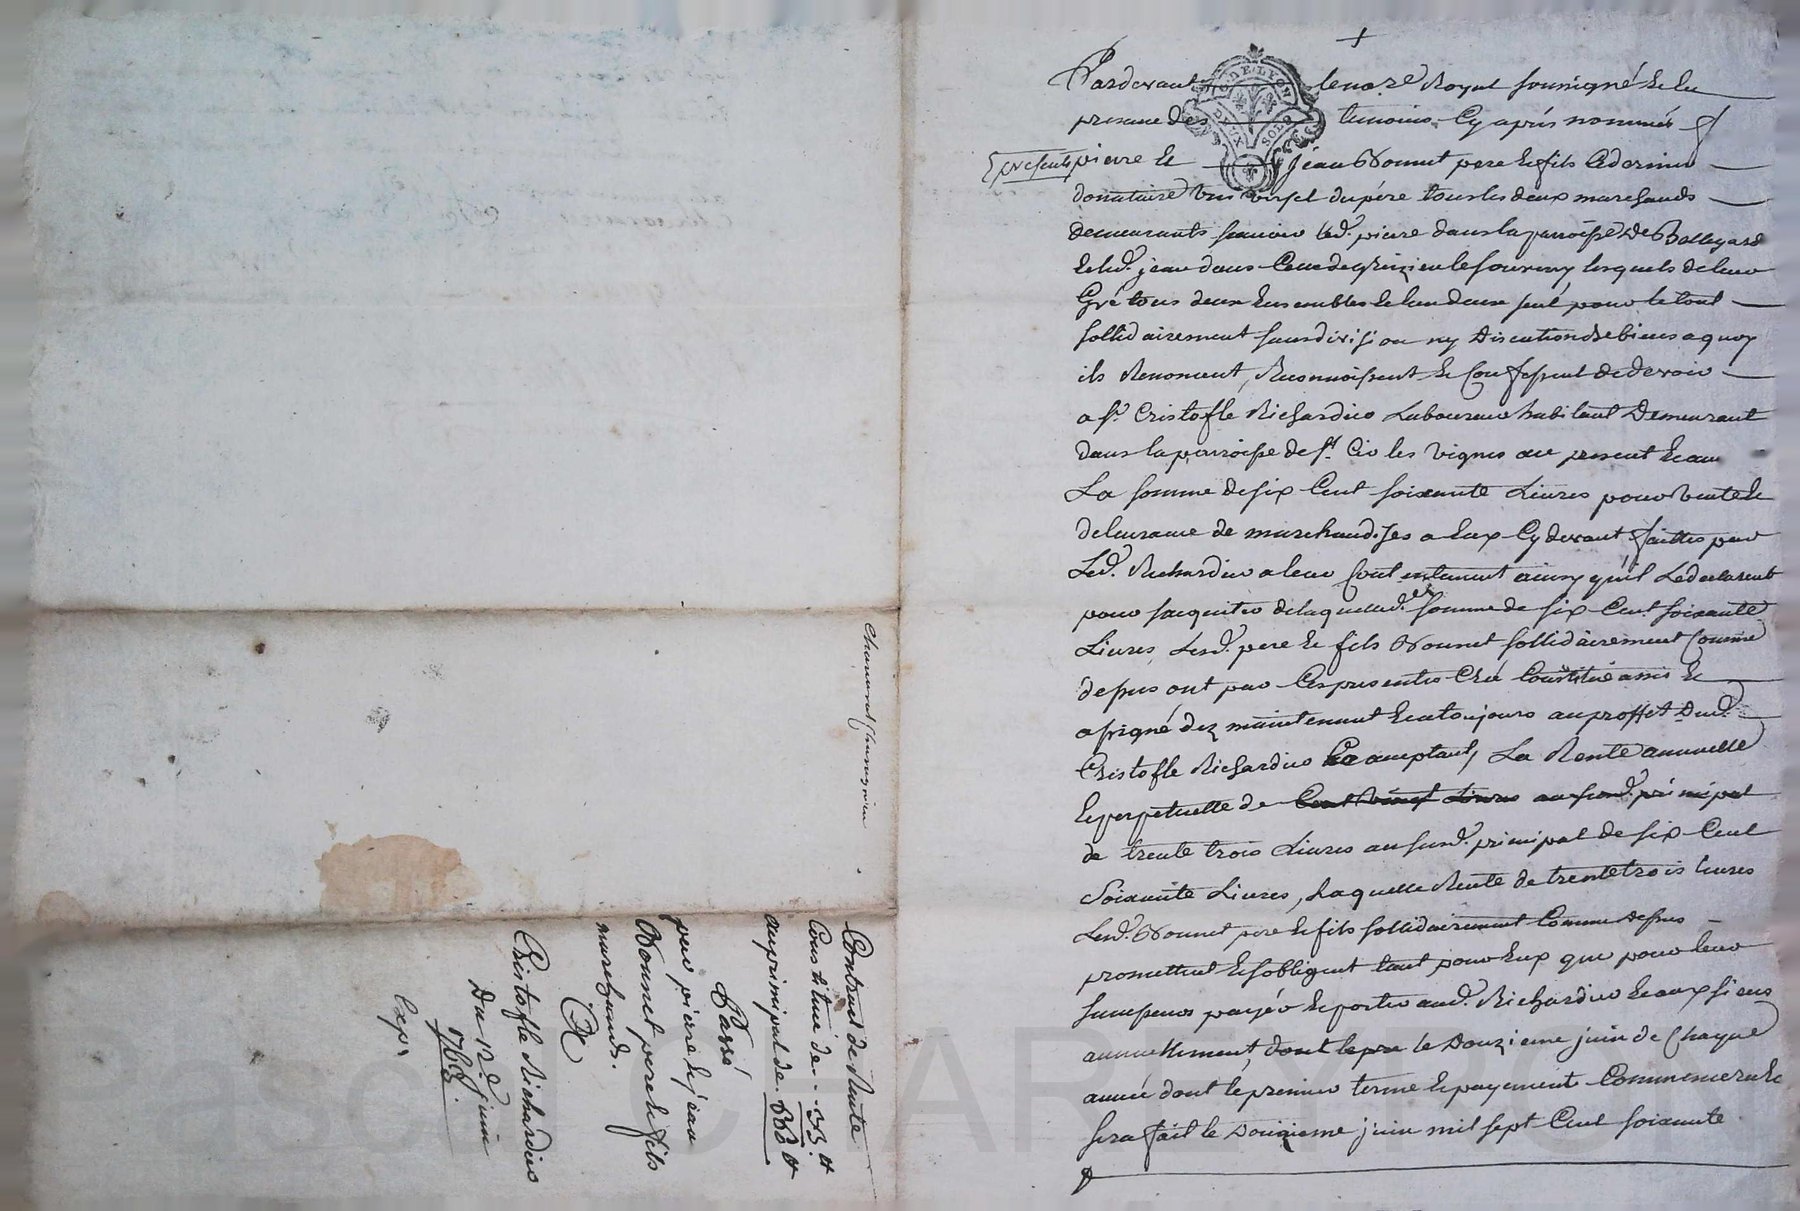 +
Pardevant le no.re Royal soussigné & en
presence des temoins Cy aprés nommés
presents pierre & jean Bonnet pere & fils Ce dernier
donataire universel du pére tous les deux marchands
demeurants scavoir led. pierre dans la parroisse De
& led. jean dans Celle de lesquels de leur
Gré tous deux Ensembles & l'un deux seul pour le tout
sollidairement sans division ny Discution de biens a quoy
ils Renoncent, Reconnoissent & Confessent de devoir
a sr. Cristofle Richardier Laboureur habitant Demeurant
dans la parroisse de st. Cir les vignes au present &
La somme de six Cent soixante Livres pour vente &
delivrance de marchandises a Eux Cy devant faittes par
Led. Richardier a leur Contentement ainsy qu'il Le declarent
pour sacquiter de laquelle d. somme de six Cent soixante
Livres, Lesd. pere & fils Bonnet sollidairement Comme
dessus ont par Ces presentes Créé Constitué assis &
assigné dez maintenant & a toujours au proffit Dud.
Cristofle Richardier acceptant, La Rente annuelle
& perpetuelle de Cent vingt Livres au susd. principal
de trente trois Livres au susd. principal de six Cent
Soixante Livres, Laquelle Rente de trente trois livres
Lesd. Bonnet pere & fils sollidairement Comme dessus
promettent & s'obligent tant pour Eux que pour leur
payér & porter aud. Richardier & aux siens
annuellement, dont le pre le Douzieme juin de Chaque
année dont le premier terme & payement Commencera &
sera fait le Douzieme juin mil sept Cent soixante
G. DE LYON
DEUX SOLS
Contrat de Rente
Constituée de .. 33 #
au principal de 660 #
Passé
par pierre & jean
Bonnet pere & fils
marchands.
A
Cristofle Richardier
Du 12.e juin
Exp.
PASCAL CHAREYRON